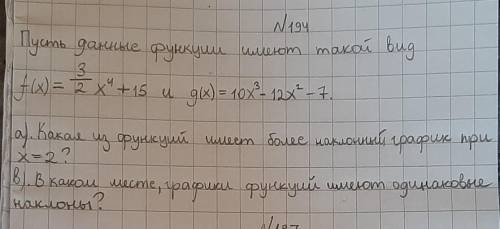 N194
Пусть данные функции имеют такой вид
f(x) = 3/2 x⁴ + 15 и g(x) = 10x³ - 12x² - 7.
a). Какая из функций имеет более наклонний график при
x = 2?
в). В каком месте, графики функций имеют одинаковые
наклоны?